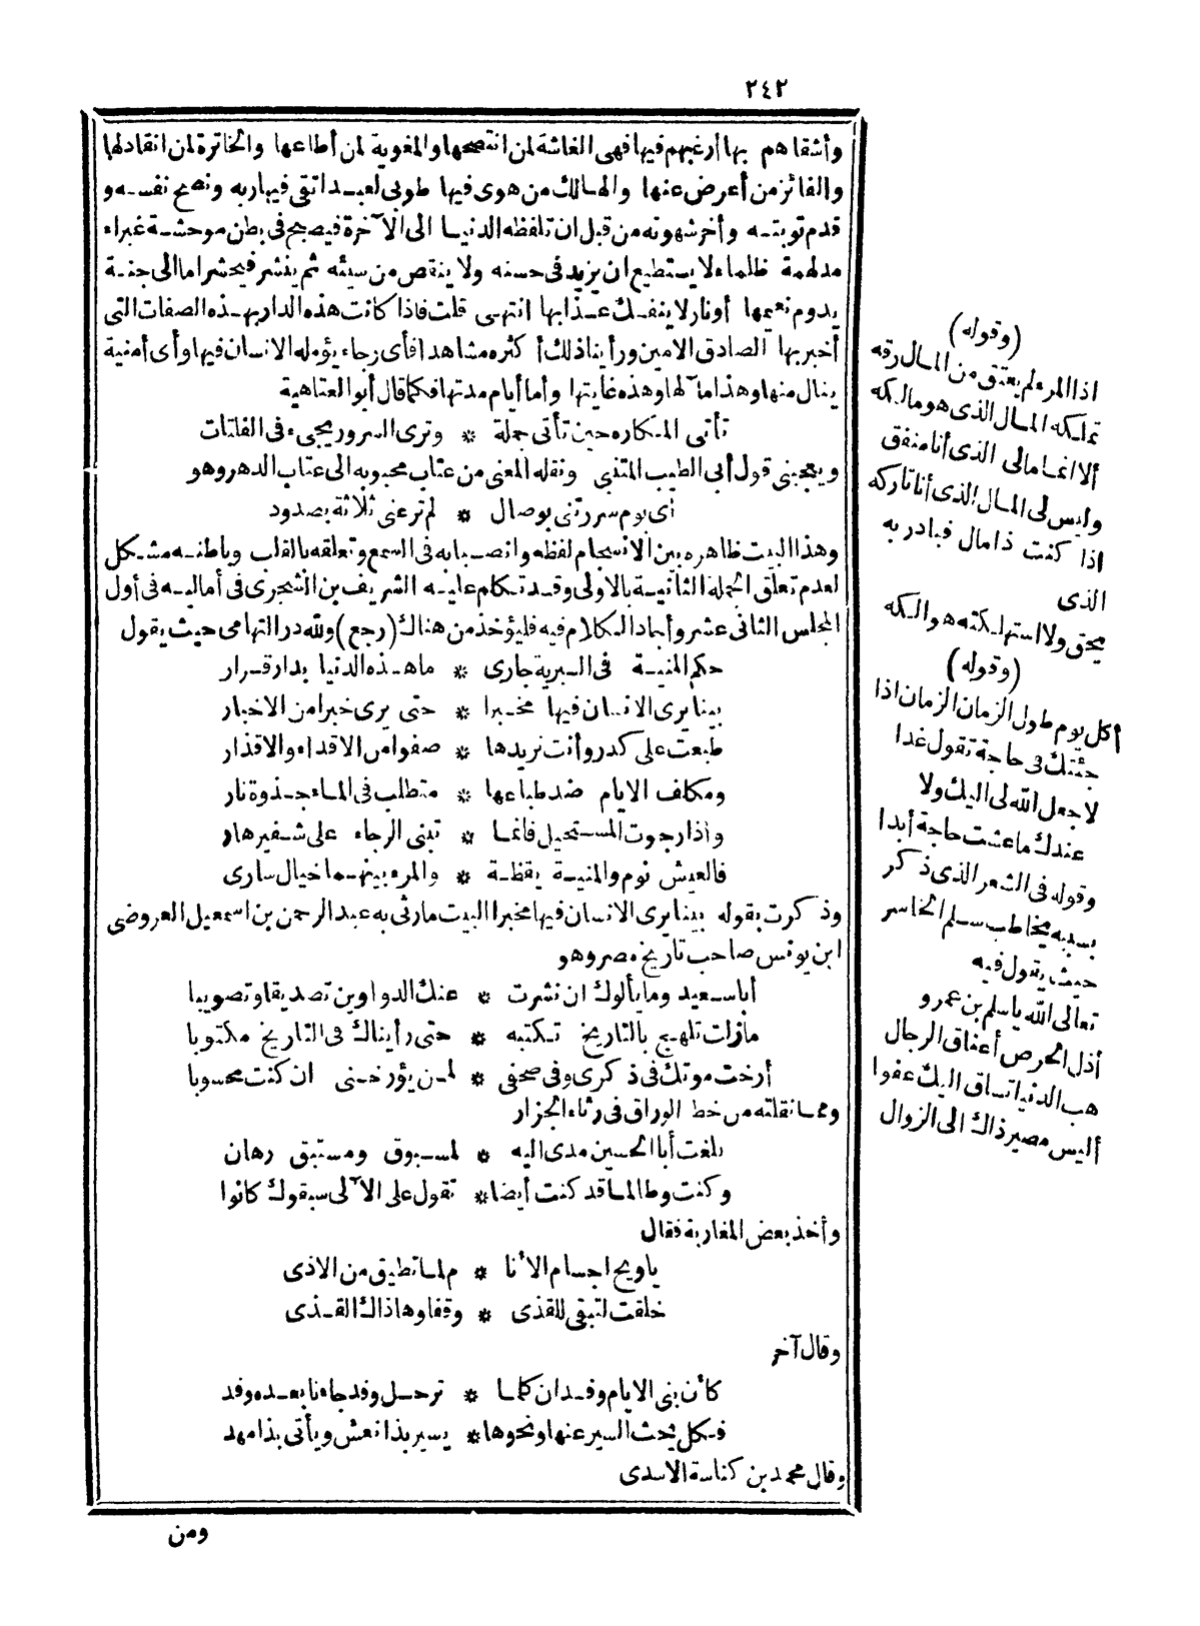 ٢٤٢
وأشقاهم بها أرغبهم فيها فهى الغاشة لمن انتصحها والمغوية لمن أطاعها والخاترة لمن انقاد لها
والفائز من أعرض عنها والهالك من هوى فيها طوبى لعبد اتقى فيها ربه ونصح نفسه و
قدم توبته وأخر شهوته من قبل ان تلفظه الدنيا الى الآخرة فيصبح فى بطن موحشة غبراء
مدلهمة ظلماء لا يستطيع ان يزيد فى حسنه ولا ينقص من سيئه ثم ينشر فيحشر اما الى جنة
يدوم نعيمها أو نار لا ينفك عذابها انتهى قلت فاذا كانت هذه الدار بهذه الصفات التى
أخبر بها الصادق الامين ورأينا ذلك أكثره مشاهدا فأى رجاء يؤمله الانسان فيها وأى أمنية
ينال منها وهذا مآلها وهذه غايتها وأما أيام مدتها فكما قال أبو العتاهية
تأتى المكاره حين تأتى جملة * وترى السرور يجىء فى الفلتات
ويعجبنى قول أبى الطيب المتنبى ونقله المعنى من عتاب محبوبه الى عتاب الدهر وهو
أى يوم سررتنى بوصال * لم ترعنى ثلاثة بصدود
وهذا البيت ظاهره بين الانسجام لفظه وانصبابه فى السمع وتعلقه بالقلب وباطنه مشكل
لعدم تعلق الجملة الثانية بالاولى وقد تكلم عليه الشريف بن الشجرى فى أماليه فى أول
المجلس الثانى عشر وأجاد الكلام فيه فليؤخذ من هناك (رجع) ولله در التهامى حيث يقول
حكم المنية فى البرية جارى * ما هذه الدنيا بدار قرار
بينا يرى الانسان فيها مخبرا * حتى يرى خبرا من الاخبار
طبعت على كدر وأنت تريدها * صفوا من الاقداء والاقذار
ومكلف الايام ضد طباعها * متطلب فى الماء جذوة نار
واذا رجوت المستحيل فانما * تبنى الرجاء على شفير هار
فالعيش نوم والمنية يقظة * والمرء بينهما خيال سارى
وذكرت بقوله بينا يرى الانسان فيها مخبرا البيت ما رثى به عبد الرحمن بن اسمعيل العروضى
ابن يونس صاحب تاريخ مصر وهو
أبا سعيد وما يألوك ان نشرت * عنك الدواوين تصديقا وتصويبا
مازلت تلهج بالتاريخ تكتبه * حتى رأيناك فى التاريخ مكتوبا
أرخت موتك فى ذكرى وفى صحفى * لمن يؤرخنى ان كنت محسوبا
ومما نقلته من خط الوراق فى رثاء الجزار
بلغت أبا الحسين مدى اليه * لمسبوق ومستبق رهان
وكنت وطالما قد كنت أيضا * تقول على الآلى سبقوك كانوا
وأخذ بعض المغاربة فقال
ياويح اجسام الأنا * م لما تطيق من الاذى
خلقت لتبقى للقذى * وقفا وهاذاك القذى
وقال آخر
كأن بنى الايام وفدان كلما * ترحل وفد جاءنا بعده وفد
فكل يحث السير عنها ونحوها * يسير بذا نعش ويأتى بذا مهد
وقال محمد بن كناسة الاسدى
ومن
(وقوله)
اذا المرء لم يعتق من المال رقه
تملكه المال الذى هو مالكه
ألا انما مالى الذى أنا منفق
وليس لى المال الذى أنا تاركه
اذا كنت ذا مال فبادر به
الذى
يحق ولا استهلكته هوالكه
(وقوله)
أكل يوم طول الزمان الزمان اذا
جئتك فى حاجة تقول غدا
لا جعل الله لى اليك ولا
عندك ما عشت حاجة أبدا
وقوله فى الشعر الذى ذكر
بسببه يخاطب سلم الخاسر
حيث يقول فيه
تعالى الله ياسلم بن عمرو
أذل الحرص أعناق الرجال
هب الدنيا تساق اليك عفوا
أليس مصير ذاك الى الزوال